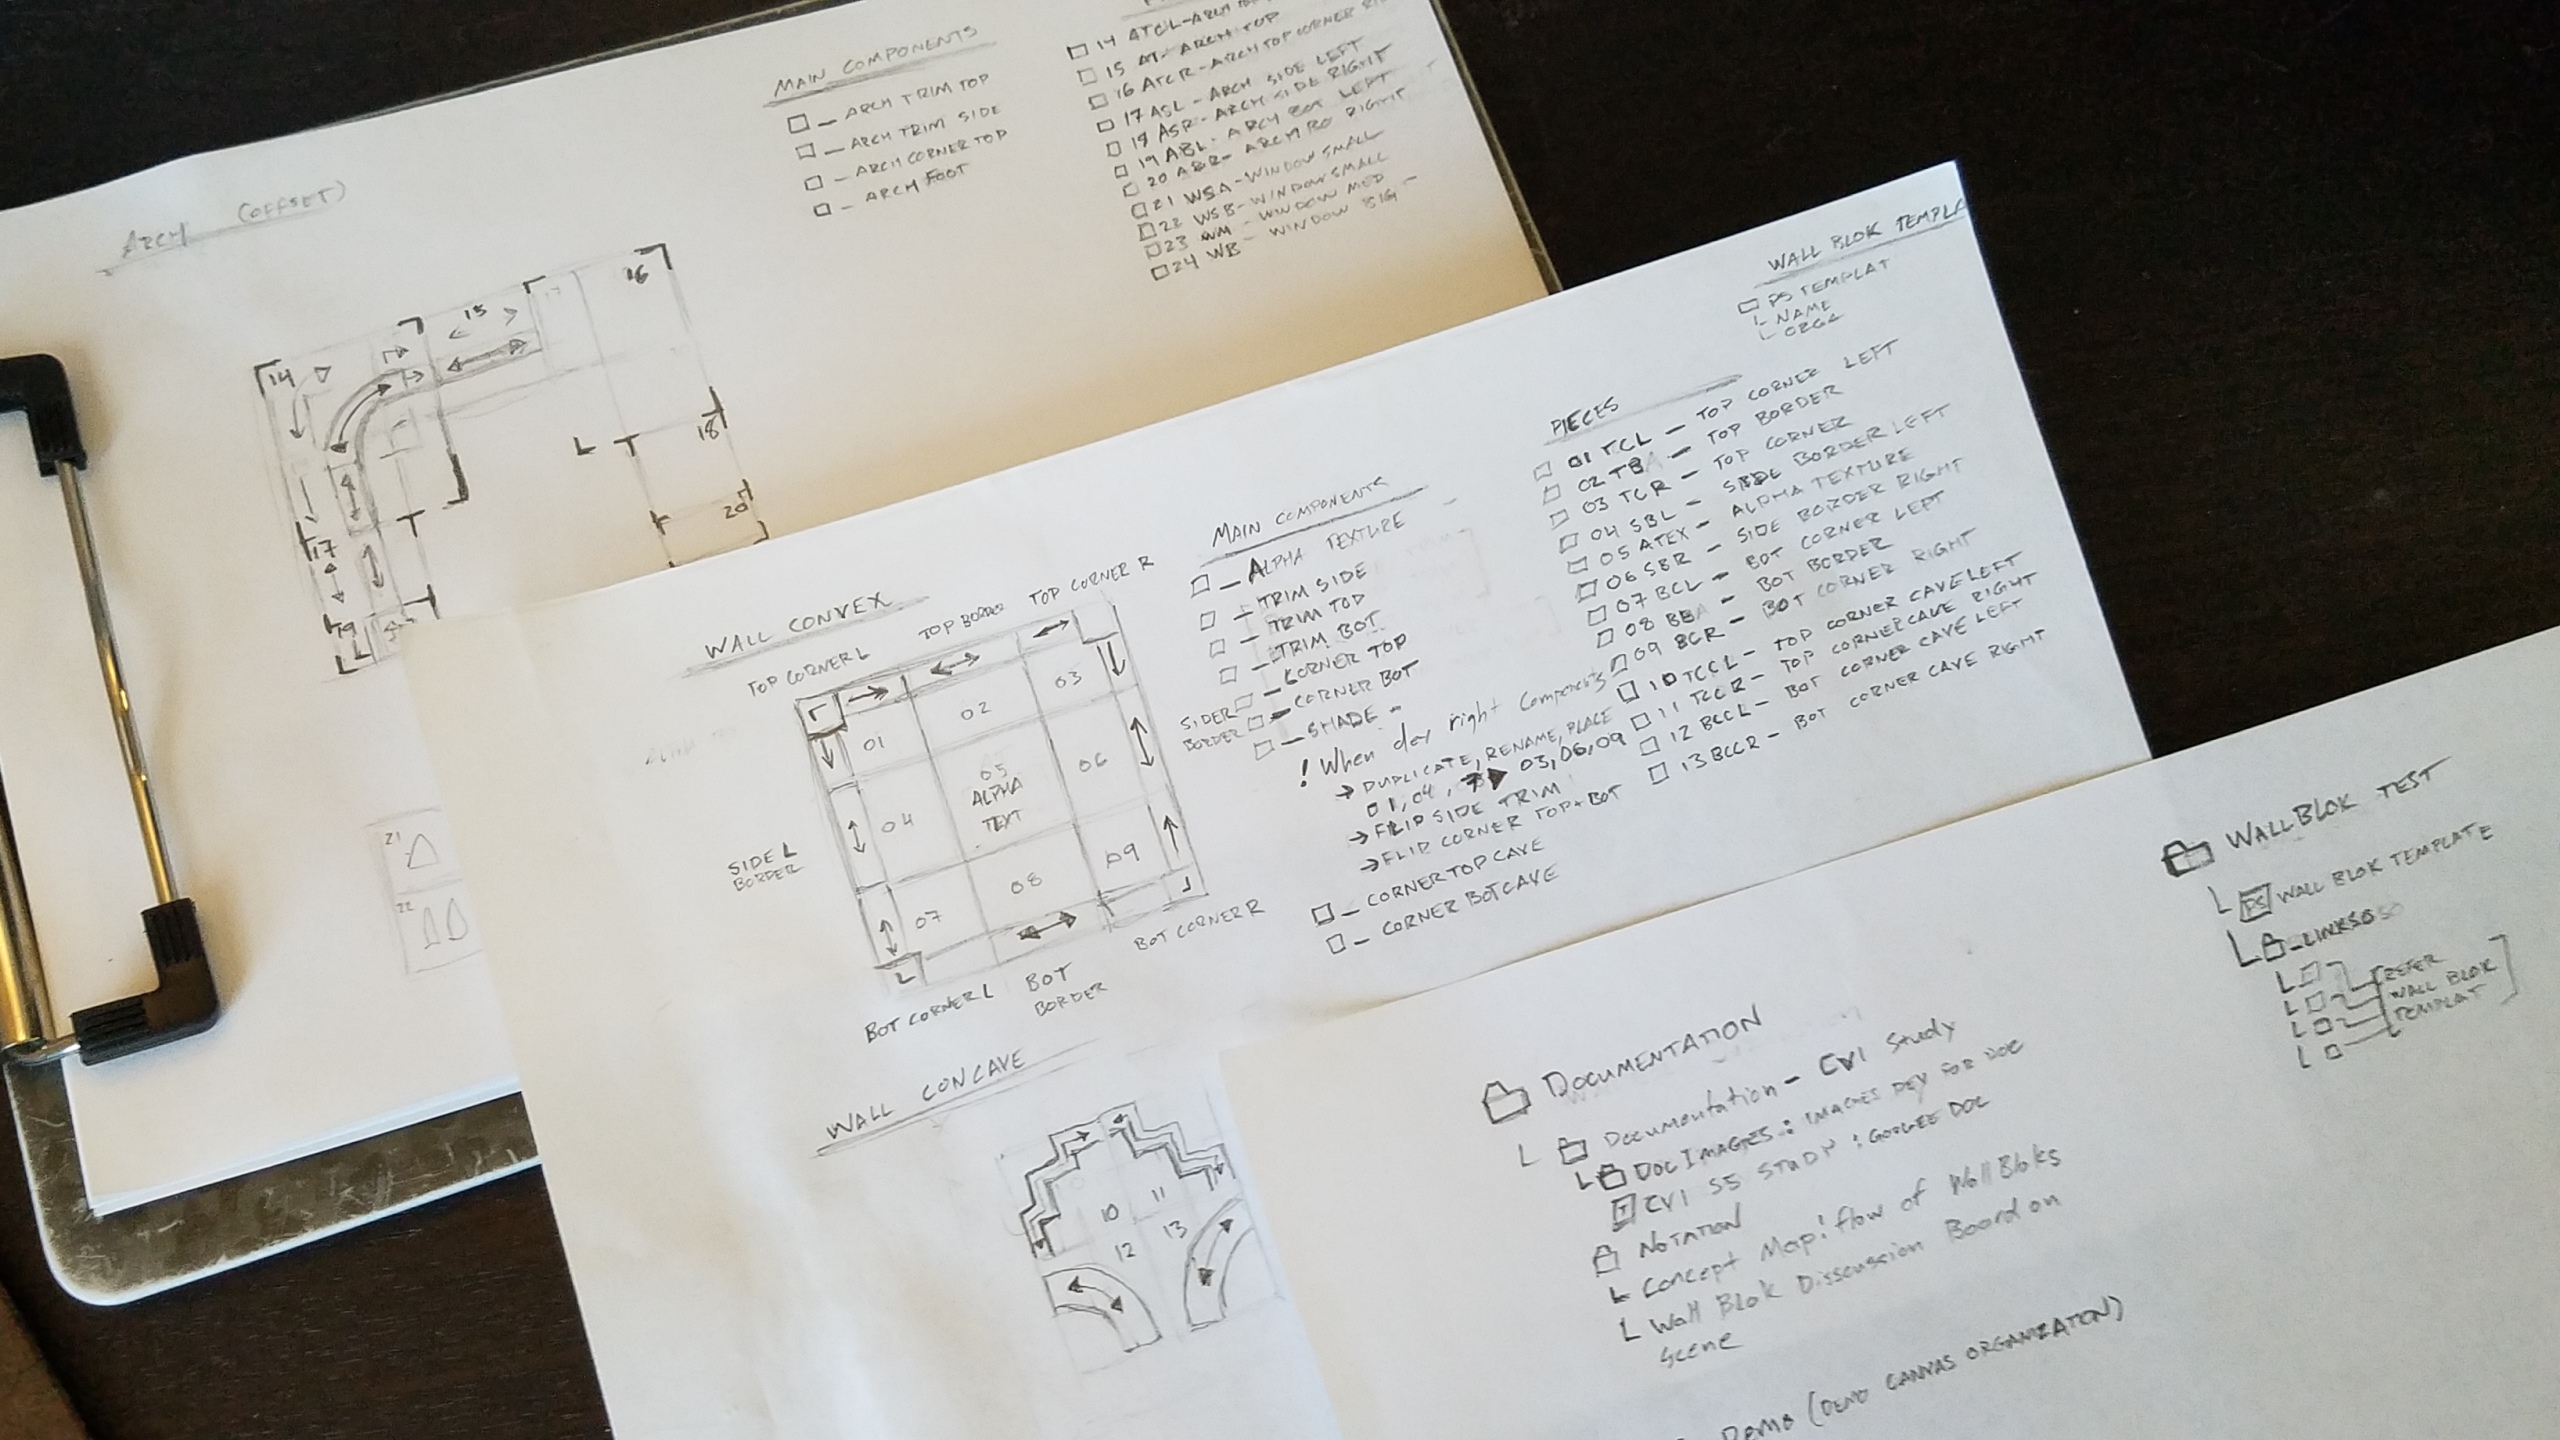 ARCH (OFFSET)
14
15
16
17
18
19
20
L
L
21
22
MAIN COMPONENTS
□ – ARCH TRIM TOP
□ – ARCH TRIM SIDE
□ – ARCH CORNER TOP
□ – ARCH FOOT
□ 14 ATCL – ARCH
□ 15 AT – ARCH TOP
□ 16 ATCR – ARCH TOP CORNER
□ 17 ASL – ARCH SIDE LEFT
□ 18 ASR – ARCH SIDE RIGHT
□ 19 ABL – ARCH BOT LEFT
□ 20 ABR – ARCH BO RIGHT
□ 21 WSA – WINDOW SMALL
□ 22 WSB – WINDOW SMALL
□ 23 WM – WINDOW MED
□ 24 WB – WINDOW BIG
WALL CONVEX
TOP CORNER L
TOP BORDER
TOP CORNER R
01
02
03
04
05
ALPHA
TEXT
06
07
08
09
SIDE L
BORDER
SIDE R
BORDER
BOT CORNER L
BOT
BORDER
BOT CORNER R
WALL CONCAVE
10
11
12
13
MAIN COMPONENTS
□ – ALPHA TEXTURE
□ – TRIM SIDE
□ – TRIM TOP
□ – TRIM BOT
□ – CORNER TOP
□ – CORNER BOT
□ – SHADE –
! When dev right Components
→ DUPLICATE, RENAME, PLACE
01, 04, 7 ▶ 03, 06, 09
→ FLIP SIDE TRIM
→ FLIP CORNER TOP + BOT
□ – CORNER TOP CAVE
□ – CORNER BOT CAVE
WALL BLOK TEMPLA
□ PS TEMPLAT
L NAME
L ORGA
PIECES
□ 01 TCL – TOP CORNER LEFT
□ 02 TBA – TOP BORDER
□ 03 TCR – TOP CORNER
□ 04 SBL – SIDE BORDER LEFT
□ 05 ATEX – ALPHA TEXTURE
□ 06 SBR – SIDE BORDER RIGHT
□ 07 BCL – BOT CORNER LEFT
□ 08 BBA – BOT BORDER
□ 09 BCR – BOT CORNER RIGHT
□ 10 TCCL – TOP CORNER CAVE LEFT
□ 11 TCCR – TOP CORNER CAVE RIGHT
□ 12 BCCL – BOT CORNER CAVE LEFT
□ 13 BCCR – BOT CORNER CAVE RIGHT
DOCUMENTATION
L Documentation – CV1 Study
L DOC IMAGES : IMAGES DEV FOR DOC
T CV1 S5 STUDY : GOOGLE DOC
NOTATION
L Concept Map: flow of WallBloks
L Wall Blok Disscussion Board on
Scene
Demo (DEMO CANVAS ORGANIZATION)
WALLBLOK TEST
L PS WALL BLOK TEMPLATE
L _LINKS
L □
L □
L □
L □
[REFER
WALL BLOK
TEMPLAT]